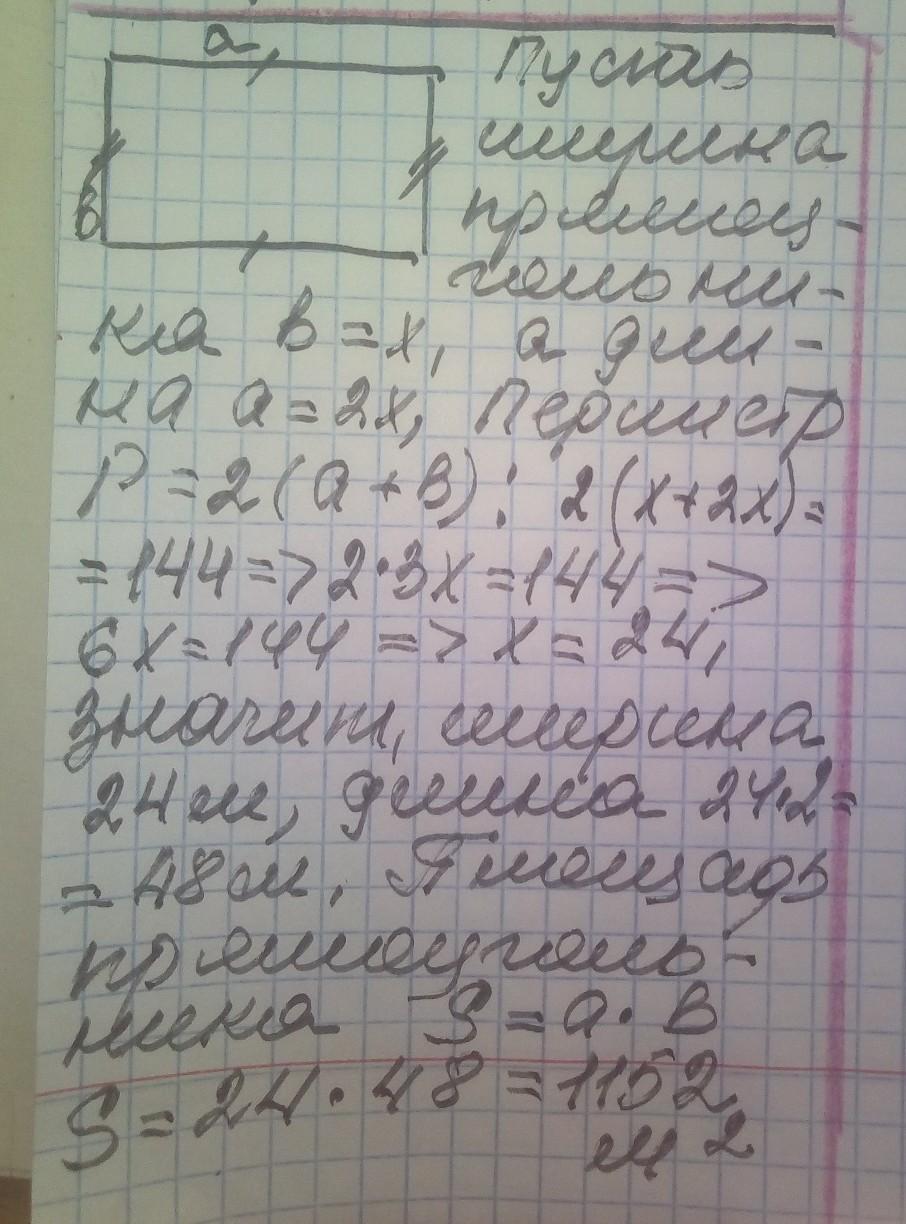 a
в
Пусть
ширина
прямоу-
гольни-
ка в=x, а дли-
на a=2x, Периметр
P=2(a+в): 2(x+2x)=
=144=>2·3x=144=>
6x=144 => x=24,
значит, ширина
24м, длина 24·2=
=48м. Площадь
прямоуголь-
ника S=a·в
S=24·48=1152
м2